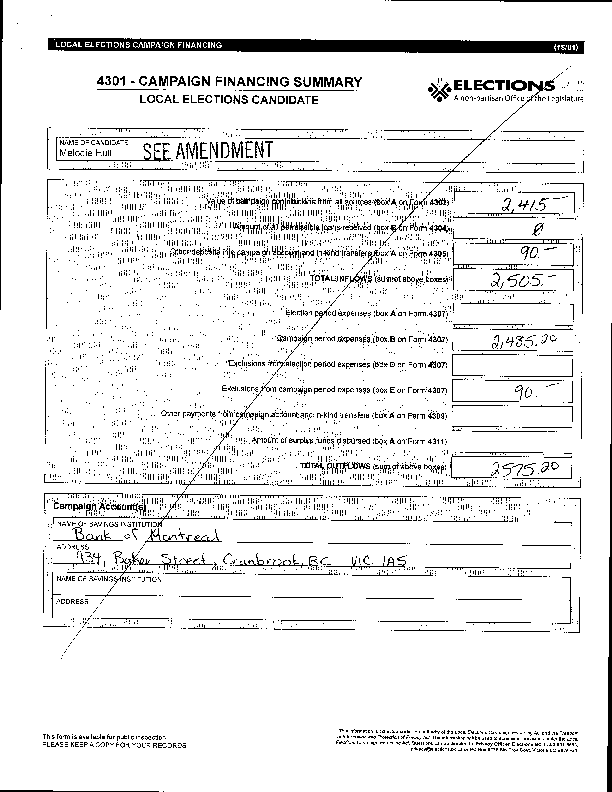 LOCAL ELECTIONS CAMPAIGN FINANCING (18/01)
4301 - CAMPAIGN FINANCING SUMMARY
LOCAL ELECTIONS CANDIDATE
ELECTIONS
A non-partisan Office of the Legislature
NAME OF CANDIDATE
Melodie Hull SEE AMENDMENT
Value of campaign contributions from all sources (box A on Form 4302) 2,415
Amount of all permissible loans received (box B on Form 4304) Ø
Other deposits to campaign account and in-kind transfers (box A on Form 4305) 90.-
TOTAL INFLOWS (sum of above boxes) 2,505.-
Election period expenses (box A on Form 4307)
Campaign period expenses (box B on Form 4307) 2,485.20
Exclusions from election period expenses (box on Form 4307)
Exclusions from campaign period expenses (box E on Form 4307) 90.-
Other payments from campaign account and in-kind transfers (box A on Form 4309)
Amount of surplus funds disbursed (box A on Form 4311)
TOTAL OUTFLOWS (sum of above boxes) 2575.20
Campaign Account(s)
NAME OF SAVINGS INSTITUTION
Bank of Montreal
ADDRESS
934, Baker Street, Cranbrook, BC V1C 1A5
NAME OF SAVINGS INSTITUTION
ADDRESS
This form is available for public inspection
PLEASE KEEP A COPY FOR YOUR RECORDS